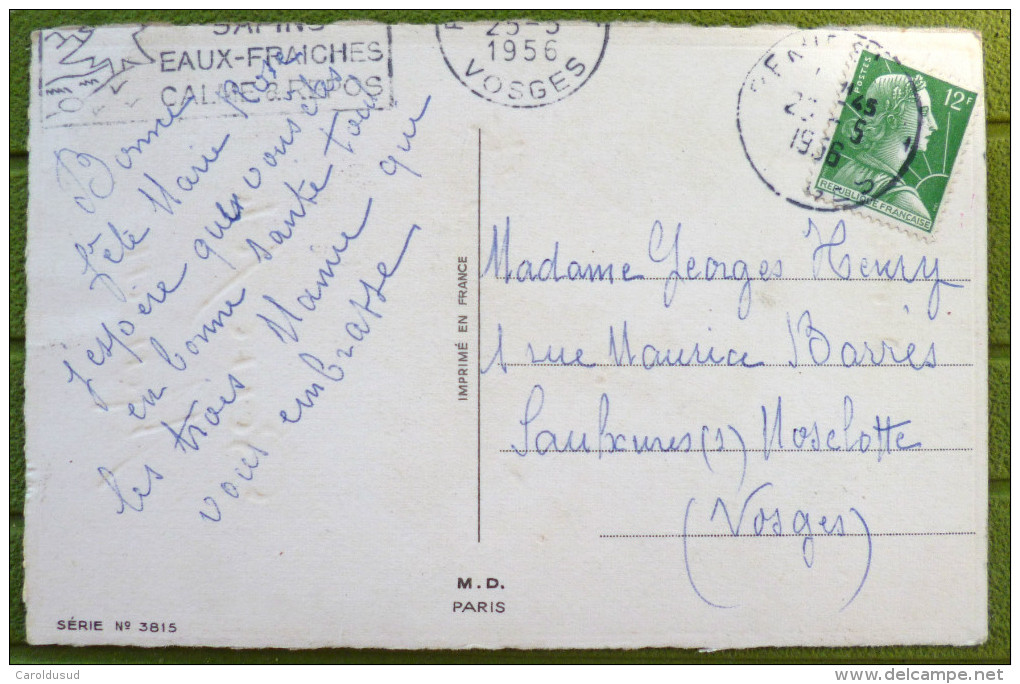 SAPINS
EAUX-FRAICHES
CALME & REPOS
25-5
1956
VOSGES
1956
POSTES
12F
REPUBLIQUE FRANÇAISE
Bonne
fête Marie Rose
J'espère que vous êtes
en bonne santé tous
les trois Mamie qui
vous embrasse
IMPRIMÉ EN FRANCE
Madame Georges Henry
1 rue Maurice Barrès
Saulxures (s) Moselotte
(Vosges)
M.D.
PARIS
SÉRIE Nº 3815
Caroldusud
www.delcampe.net